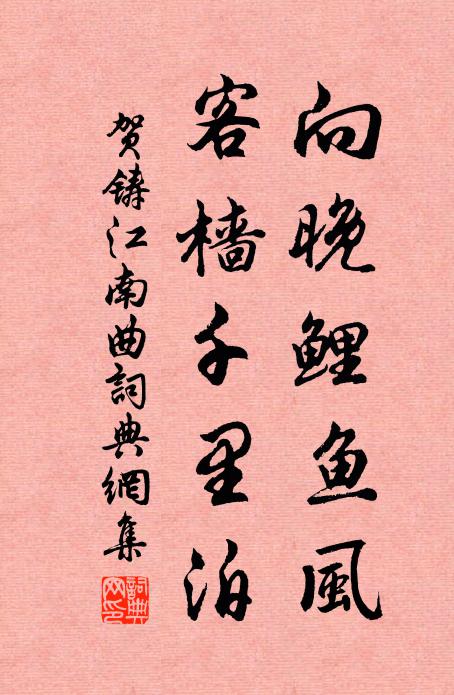 向晚鲤鱼風
客檣千里泊
贺鑄江南曲詞典網集
詞典
网印